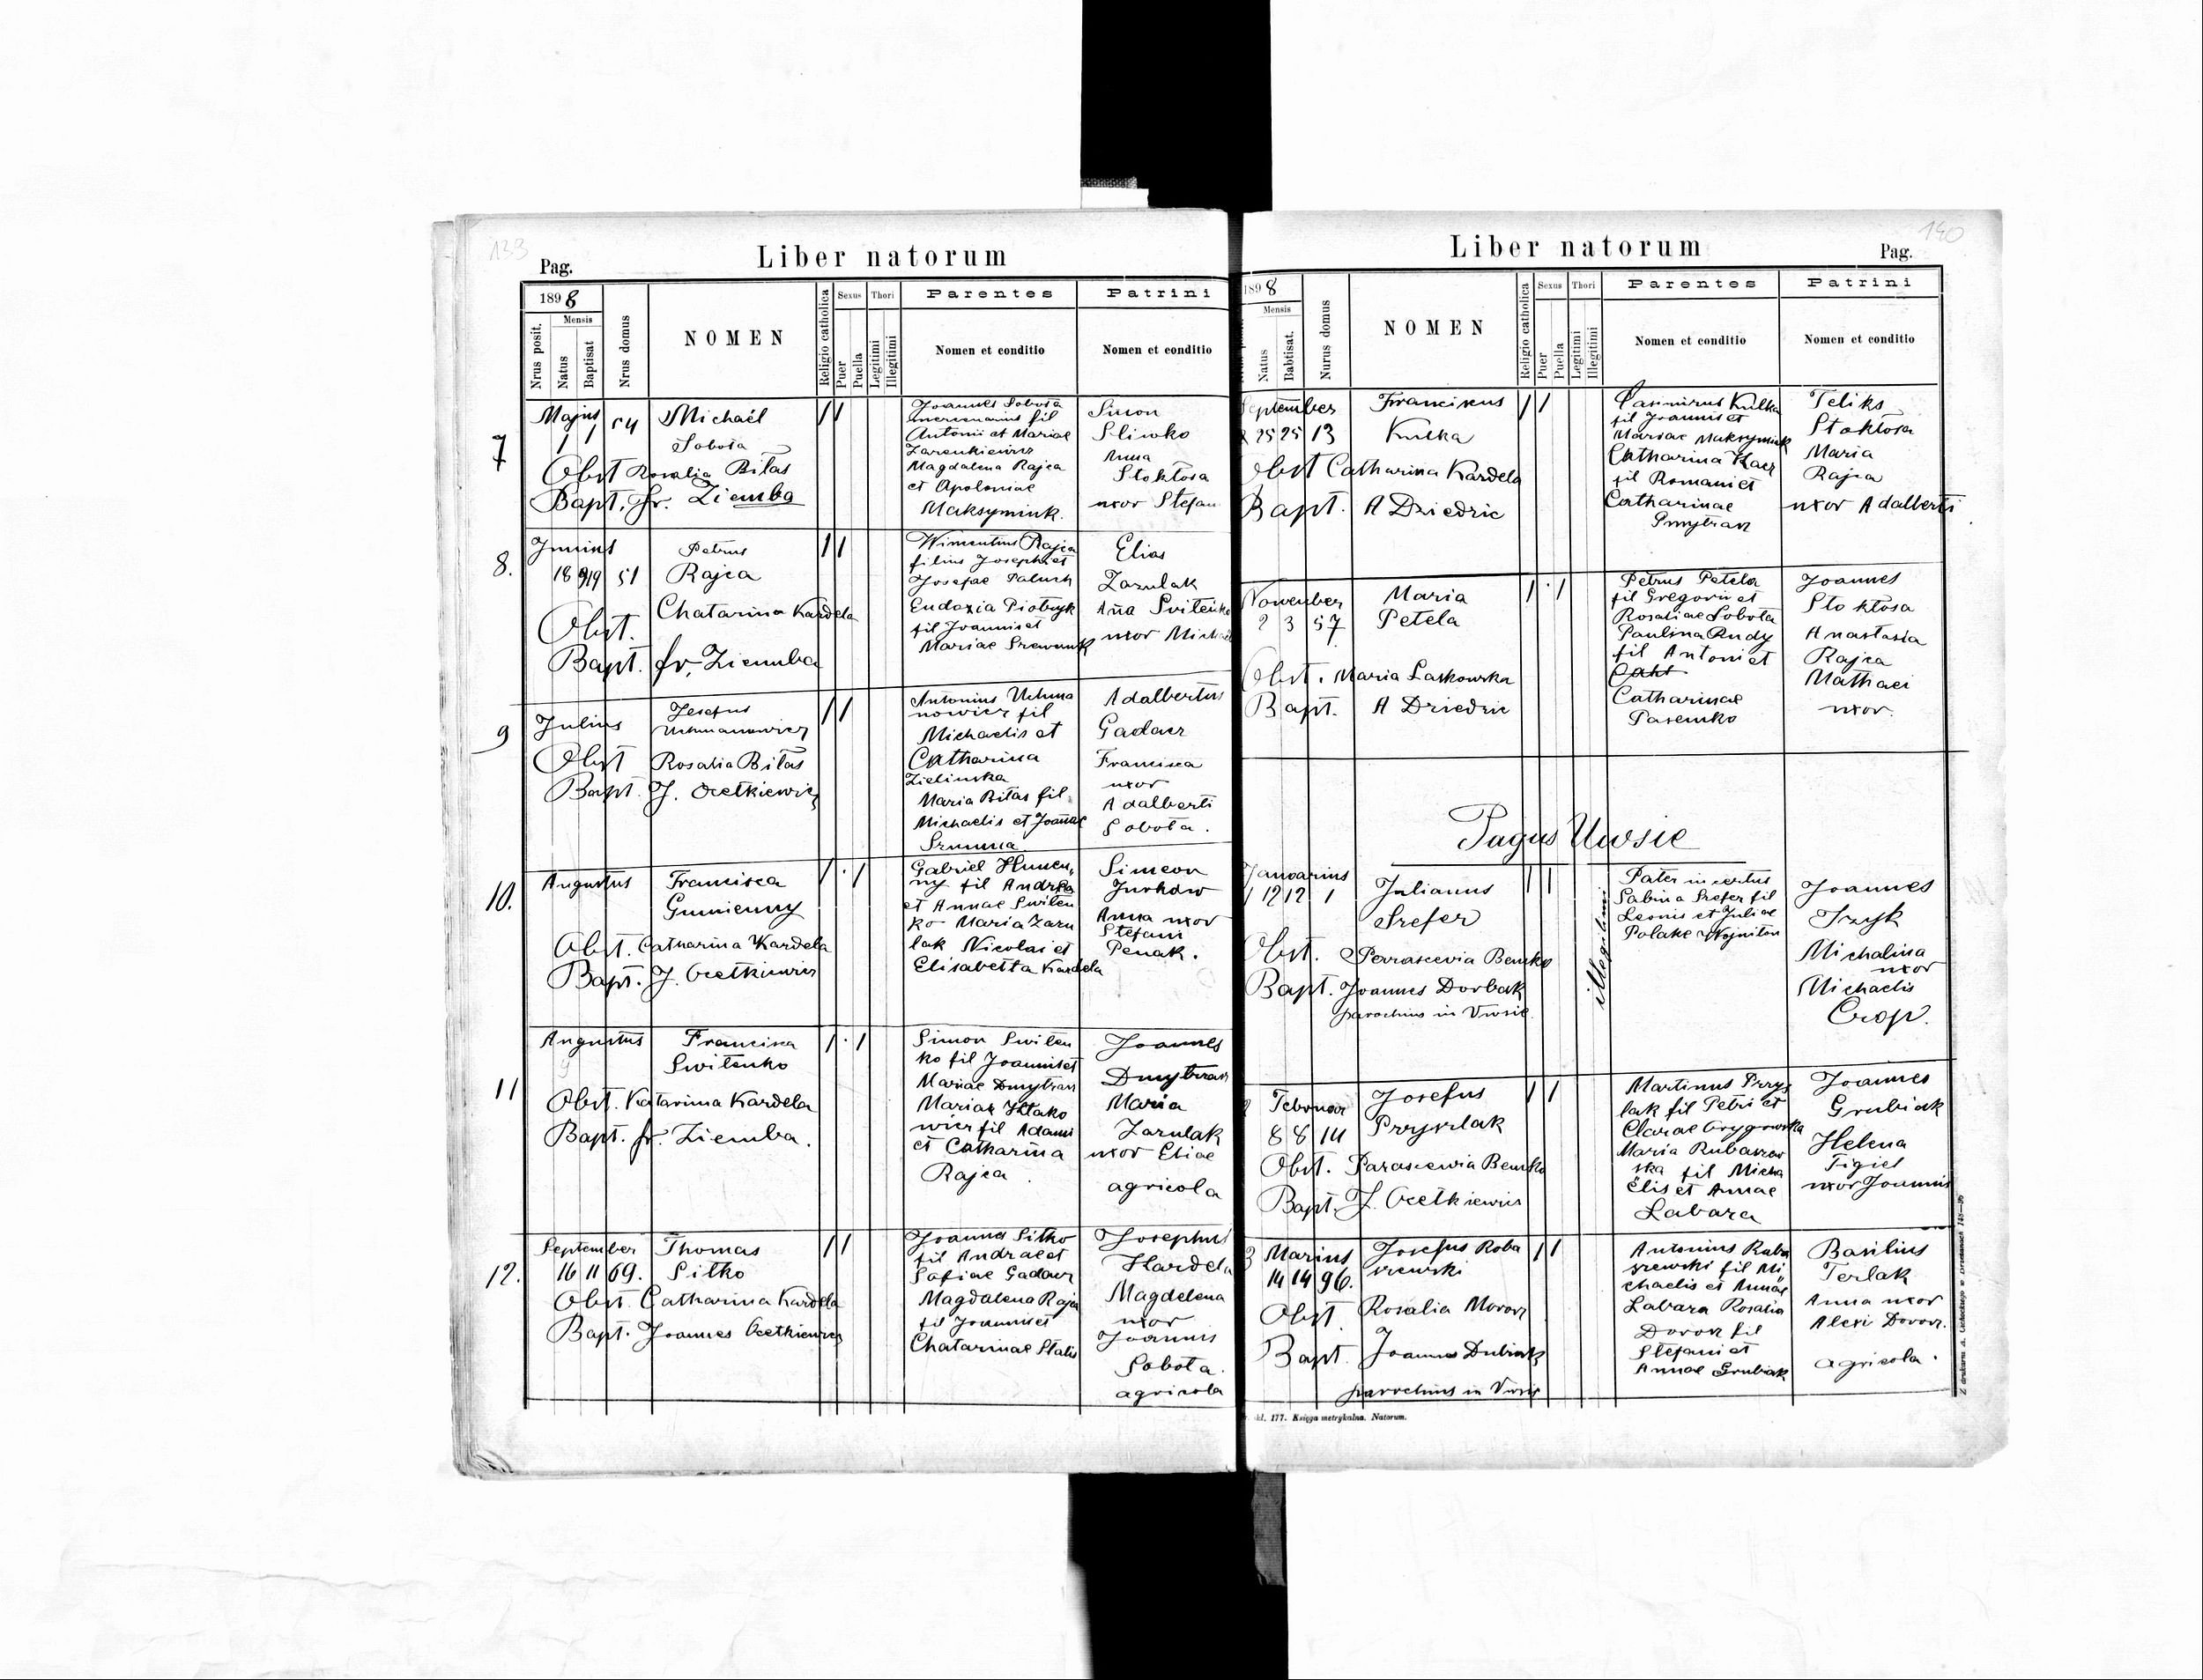 139
Pag.
Liber natorum
1898
Mensis
Nrus posit.
Natus
Baptisat
Nrus domus
NOMEN
Religio catholica
Sexus
Puer
Puella
Thori
Legitimi
Illegitimi
Parentes
Nomen et conditio
Patrini
Nomen et conditio
7
Majus
1 1 54
Michaël
Sobota
Obst Rosalia Biłas
Bapt. fr. Ziemba
Joannes Sobota
mercenarius fil
Antonii et Mariae
Zarenkiewicz
Magdalena Rajca
et Apoloniae
Maksymiuk.
Simon
Sliwko
Anna
Stokłosa
uxor Stefan
8.
Junius
18 19 51
Petrus
Rajca
Obst. Chatarina Kardela
Bapt. fr. Ziemba
Wincentius Rajca
filius Josephi et
Josefae Paluch
Eudoxia Piotryk
fil Joannis et
Mariae
Elias
Zarulak
Anna Switenko
uxor Michae
9
Julius
Josefus
Uchmanowicz
Obst Rosalia Biłas
Bapt. J. Ocetkiewicz
Antonius Uchma
nowicz fil
Michaelis et
Catharina
Zielinska
Maria Biłas fil
Michaelis et Joannae
Adalbertus
Gadacz
Francisca
uxor
Adalberti
Sobota.
10.
Augustus
Francisca
Gumienny
Obst. Catharina Kardela
Bapt. J. Ocetkiewicz
Gabriel Humen
ny fil Andrea
et Annae Switen
ko Maria Zaru
lak Nicolai et
Elisabetta Kardela
Simeon
Jurkow
Anna uxor
Stefani
Penak.
11
Augustus
Francisca
Switenko
Obst. Katarina Kardela
Bapt. fr. Ziemba.
Simon Switen
ko fil Joannis et
Mariae Dmytran
Mariae Hłako
wicz fil Adami
et Catharina
Rajca
Joannes
Dmytran
Maria
Zarulak
uxor Eliae
agricola
12.
September
16 11 69.
Thomas
Sitko
Obst. Catharina Kardela
Bapt. Joannes Ocetkiewicz
Joannes Sitko
fil Andrae et
Sofiae Gadacz
Magdalena Rajca
fil Joannis et
Chatarinae Stalis
Josephus
Kardela
Magdelena
uxor
Joannis
Sobota.
agricola
140
Liber natorum
Pag.
1898
Mensis
Natus
Babtisat.
Nurus domus
NOMEN
Religio catholica
Sexus
Puer
Puella
Thori
Legitimi
Illegitimi
Parentes
Nomen et conditio
Patrini
Nomen et conditio
September
25 25 13
Franciscus
Kulka
Obst Catharina Kardela
Bapt. A Dziedzic
Casimirus Kulka
fil Joannis et
Mariae Maksymiuk
Catharina Kacz
fil Romani et
Catharinae
Dmytran
Feliks
Stokłosa
Maria
Rajca
uxor Adalberti
November
2 3 57
Maria
Petela
Obst. Maria Laskowska
Bapt. A Dziedzic
Petrus Petela
fil Gregorii et
Rosaliae Sobota
Paulina Rudy
fil Antoni et
Catharinae
Pasemko
Joannes
Stokłosa
Anastasia
Rajca
Mathaei
uxor.
Pagus Uwsie
Januarius
1 12 12 1
Julianus
Szefer
Obst. Perascevia Bemko
Bapt. Joannes Dorbak
parochus in Uwsie.
illegitimi
Pater incertus
Sabina Szefer fil
Leonis et Juliae
Joannes
Irzyk
Michalina
uxor
Michaelis
Crop.
Februar
8 8 14
Josefus
Przyszlak
Obst. Parascewia Bemko
Bapt. J. Ocetkiewicz
Martinus Przys
lak fil Petri et
Clarae
Maria Rubaszew
ska fil Micha
elis et Annae
Labaza
Joannes
Grubiak
Helena
Figiel
uxor Joannis
3
Marius
14 14 96.
Josefus Roba
szewski
Obst. Rosalia Moroz
Bapt. Joannes Dubiak
parochus in Uwsie
Antonius Ruba
szewski fil Mi
chaelis et Annae
Labaza Rosalia
Dovoz fil
Stefani et
Annae Grubiak
Basilius
Terlak
Anna uxor
Alexi Dovoz.
agricola.
kl. 177. Księga metrykalna. Natorum.